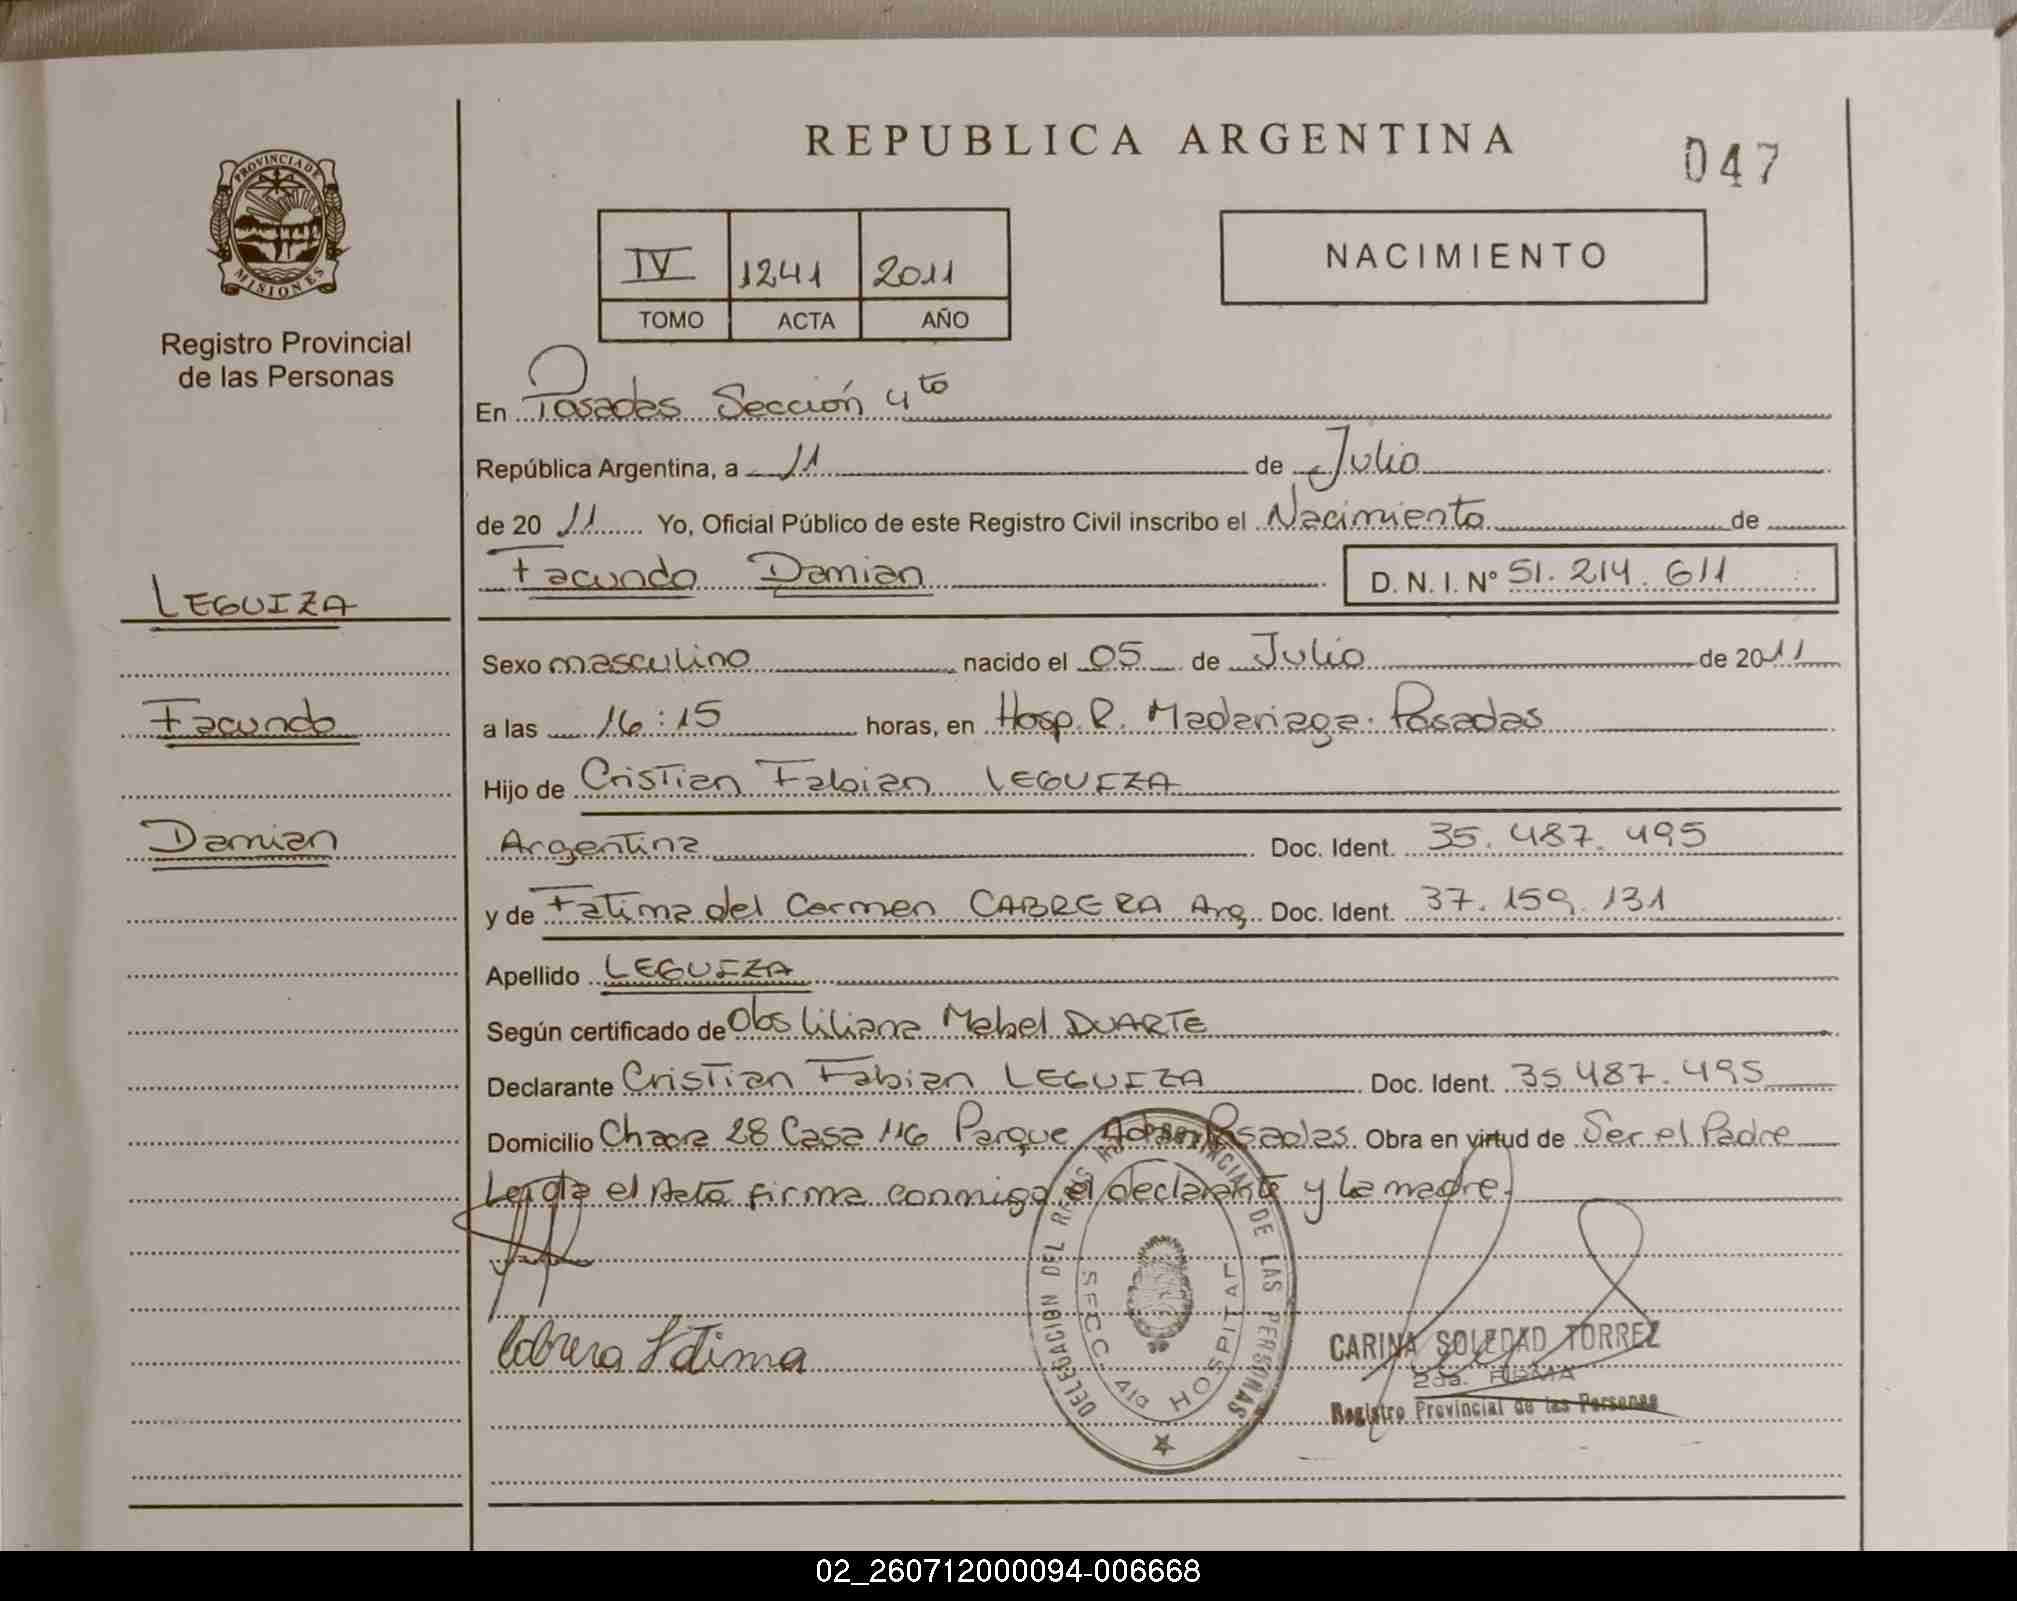 REPUBLICA ARGENTINA
047
PROVINCIA DE
MISIONES
Registro Provincial
de las Personas
IV 1241 2011
TOMO ACTA AÑO
NACIMIENTO
En Posadas Sección 4to
República Argentina, a 11 de Julio
de 2011 Yo, Oficial Público de este Registro Civil inscribo el Nacimiento de
Facundo Damian D. N. I. N° 51.214.611
LEGUIZA
Facundo
Damian
Sexo masculino nacido el 05 de Julio de 2011
a las 16:15 horas, en Hosp. R. Madariaga. Posadas
Hijo de Cristian Fabian LEGUIZA
Argentina Doc. Ident. 35.487.495
y de Fatima del Carmen CABRERA Arg. Doc. Ident. 37.159.131
Apellido LEGUIZA
Según certificado de Obs Liliana Mabel DUARTE
Declarante Cristian Fabian LEGUIZA Doc. Ident. 35.487.495
Domicilio Chacra 28 Casa 116 Parque Adam Posadas. Obra en virtud de Ser el Padre
Leida el Acta firma conmigo el declarante y la madre.
Cabrera Fatima
DELEGACION DEL REGISTRO PROVINCIAL DE LAS PERSONAS
SECC. 4ta HOSPITAL
CARINA SOLEDAD TORREZ
2da. FIRMA
Registro Provincial de las Personas
02_260712000094-006668